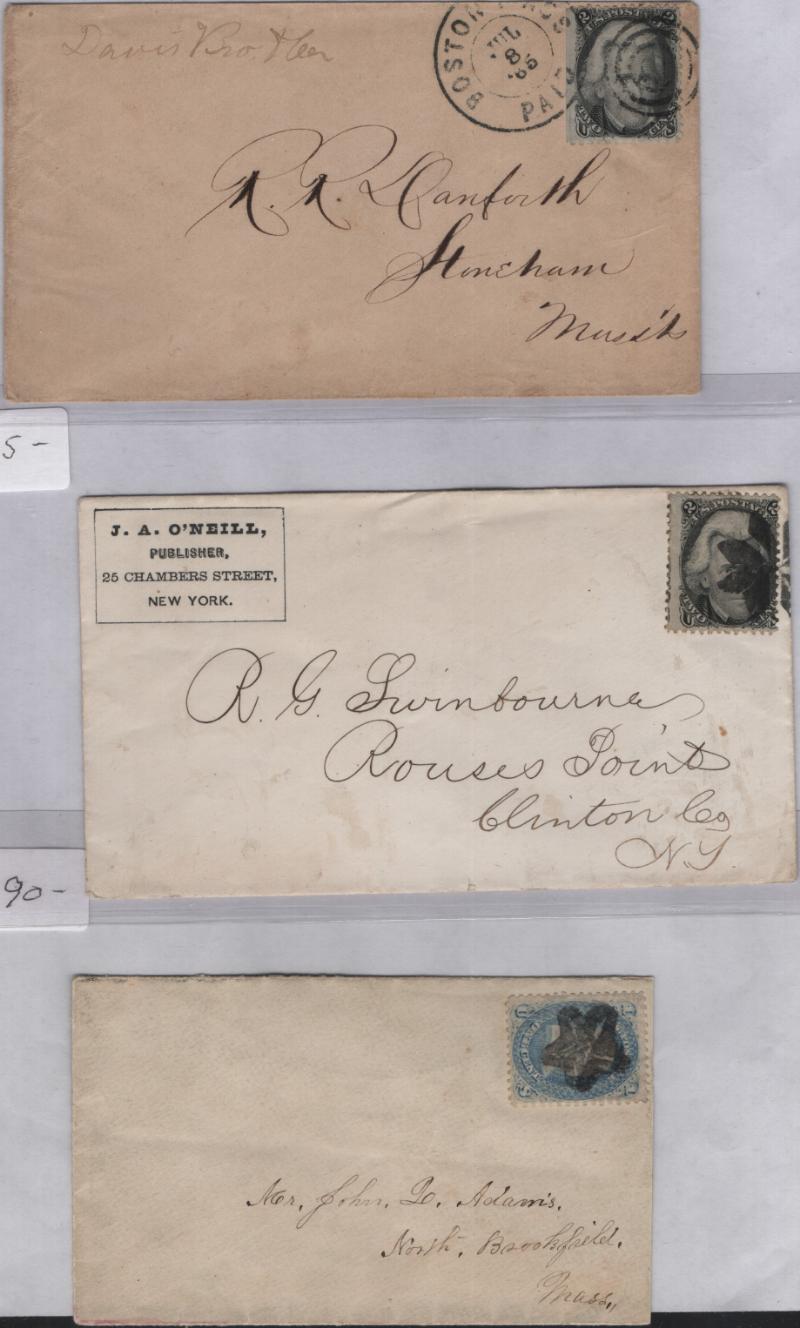 Davis Bro
BOSTON
JUL
8
'65
PAID
2 U.S. POSTAGE 2
R. R. Danforth
Stoneham
Mass'ts
5-
J. A. O'NEILL,
PUBLISHER,
25 CHAMBERS STREET,
NEW YORK.
R. G. Swinbourne
Rouses Point
Clinton Co
N.Y.
90-
Mr. John. Q. Adams.
North. Brookfield.
Mass,,